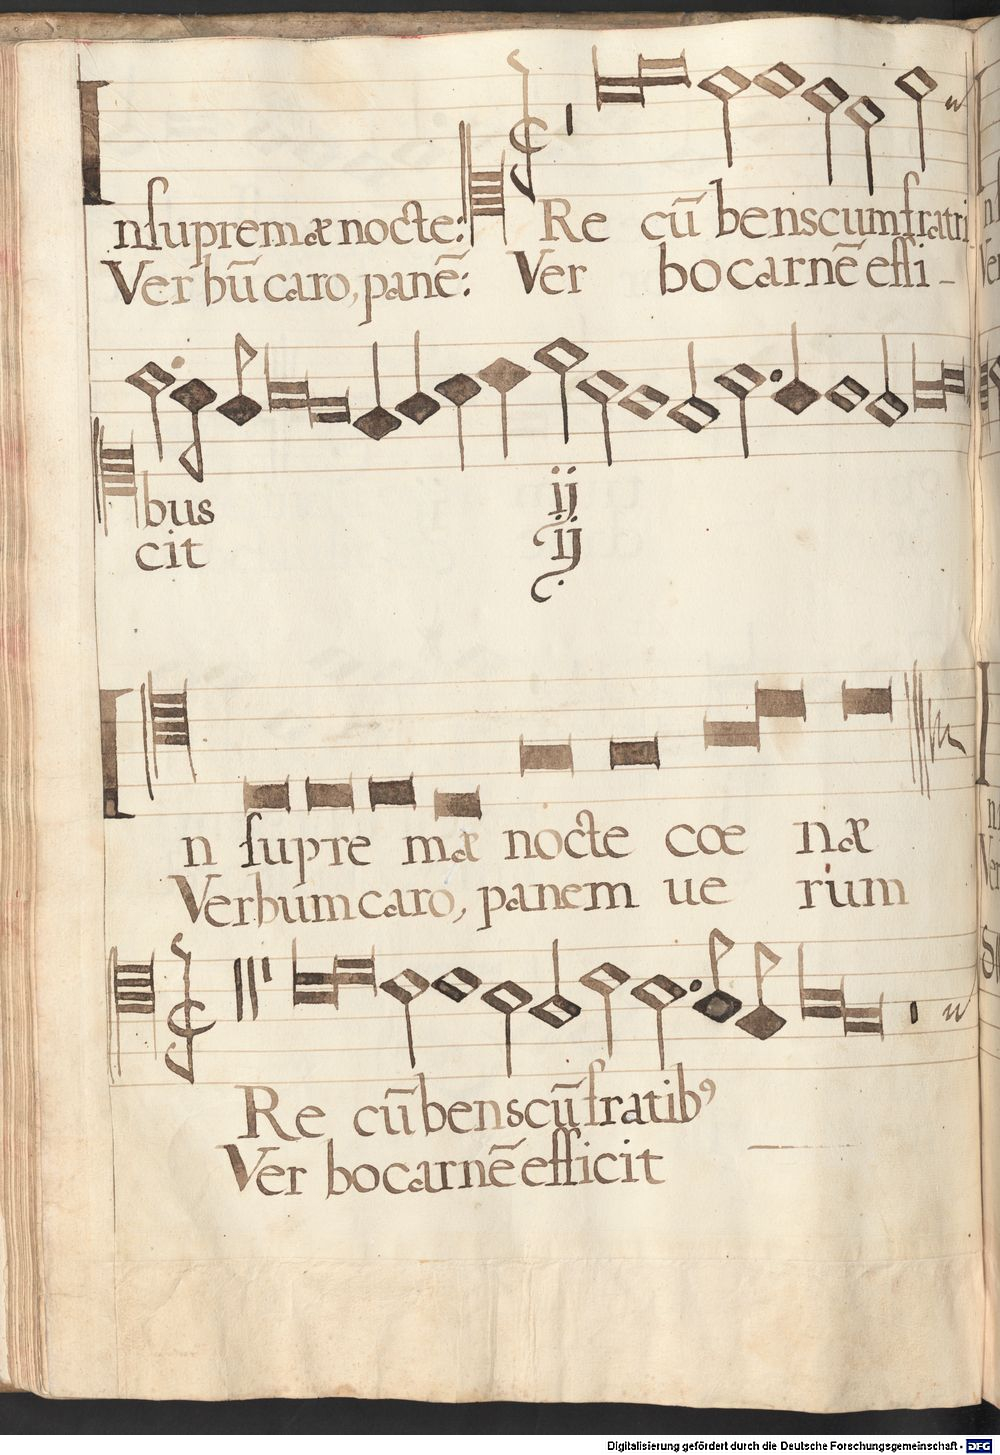 In supremæ nocte: Re cū bens cum fratri
Verbū caro, panē: Ver bo carnē effi-
bus ij
cit ij
In supre mæ nocte cœ næ
Verbum caro, panem ue rum
Re cūbens cū fratibꝰ
Ver bo carnē efficit
Digitalisierung gefördert durch die Deutsche Forschungsgemeinschaft - DFG